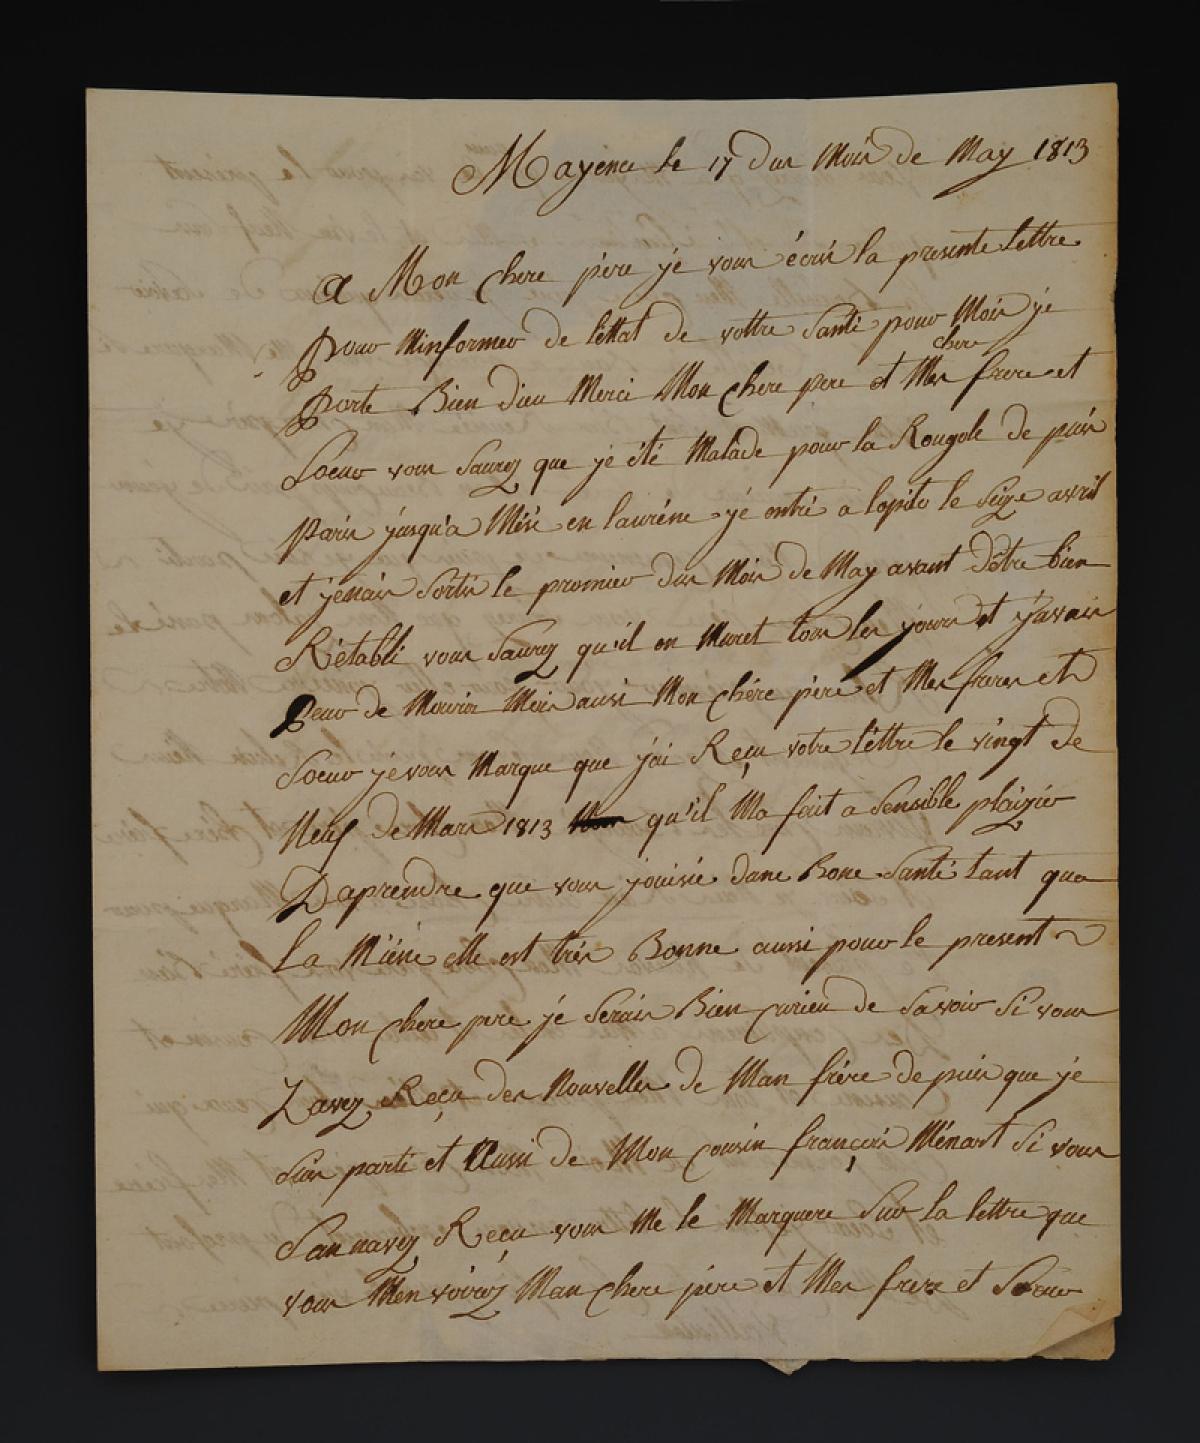 Mayence le 17 dus Mois de May 1813
A Mon chere pere je vous écris la presente lettre
pour Minformer de léttat de vottre Santé pour Mois je
porte Bien dieu Merci Mon chere pere et Mes chere frere et
Soeur vous Saurez que je été Malade pour la Rougole de puis
paris jusqu'a en jé entré a lopito le Sieze avril
et jénais Sortis le promier dus Mois de May avant d'être bien
Rétabli vous Saurez qu'il en Muret tous les jours et j'avais
peur de Mourir Mois ausi Mon chére pére et Mes freres et
Soeur je vous Marque que j'ai Reçu votre léttre le vingt de
Neuf de Mars 1813 qu'il Ma fait a Sensible plaizir
Daprendre que vous jouisié dune Bone Santé tant qua
La Miéne elle est trés Bonne aussi pour le present
Mon chere pere je Serais Bien curieu de Savoir Si vous
Zavez Reçu des Nouvelles de Mon frére de puis que je
Suis parti et Aussi de Mon cousin françois Ménart Si vous
San navez Reçu vous Me le Marquere Sur la lettre que
vous Men voirez Mon chere pére et Mes frere et Soeur